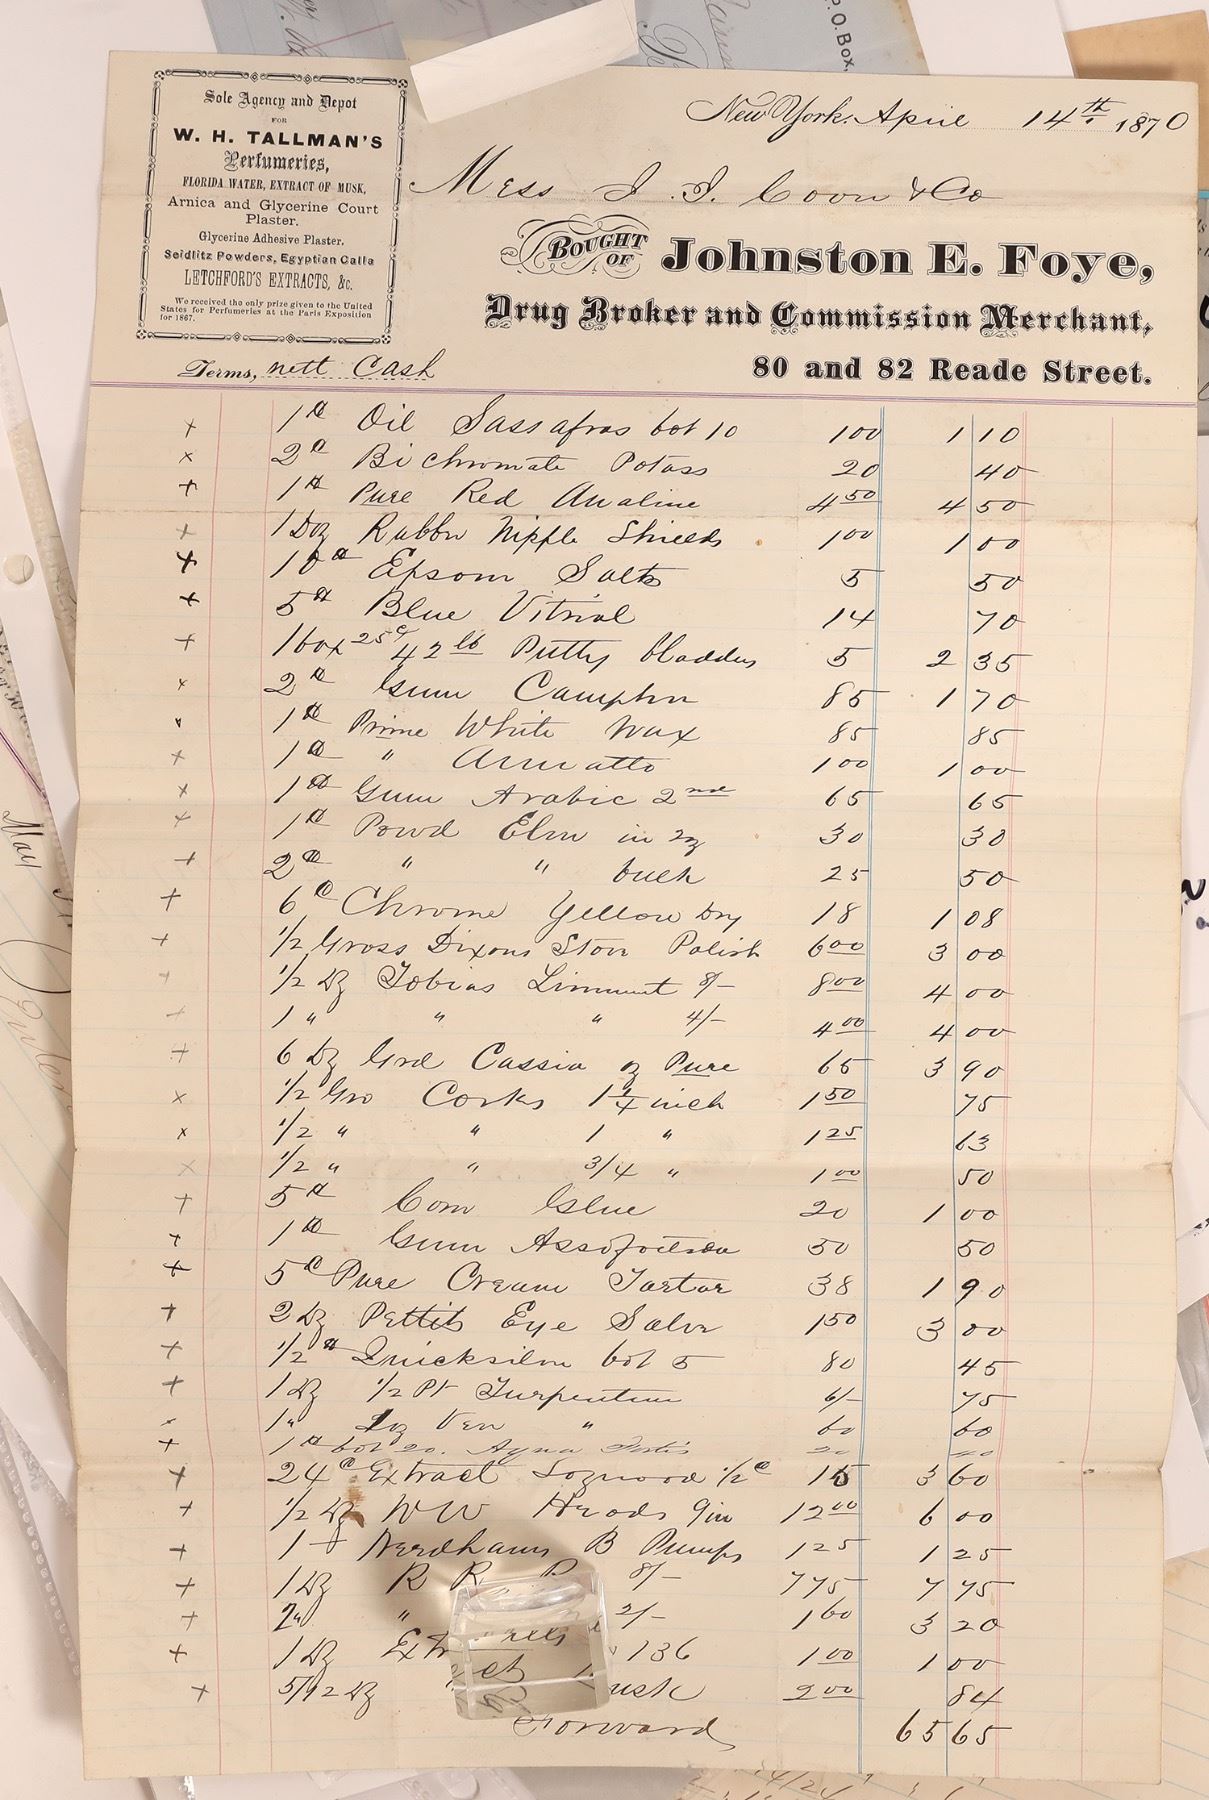 Sole Agency and Depot
FOR
W. H. TALLMAN'S
Perfumeries,
FLORIDA WATER, EXTRACT OF MUSK,
Arnica and Glycerine Court
Plaster.
Glycerine Adhesive Plaster.
Seidlitz Powders, Egyptian Calla
LETCHFORD'S EXTRACTS, &c.
We received the only prize given to the United
States for Perfumeries at the Paris Exposition
for 1867.
P.O. Box,
New York, April 14th. 1870
Mess J. J. Coon & Co
BOUGHT OF Johnston E. Foye,
Drug Broker and Commission Merchant,
80 and 82 Reade Street.
Terms, nett Cash
x 1 # Oil Sassafras bot 10 100 1 10
x 2 # Bi chromate Potass 20 40
x 1 # Pure Red Analine 4 50 4 50
x 1 Doz Rubber Nipple Shields 1 00 1 00
x 10 # Epsom Salts 5 50
x 5 # Blue Vitriol 14 70
x 1 box 25c 42 lb Putty bladders 5 2 35
x 2 # Gum Camphor 85 1 70
x 1 # Prime White Wax 85 85
x 1 # " Annatto 1 00 1 00
x 1 # Gum Arabic 2nd 65 65
x 1 # Powd Elm in oz 30 30
x 2 # " " bulk 25 50
x 6 # Chrome Yellow Dry 18 1 08
x 1/2 Gross Dixons Stove Polish 6 00 3 00
x 1/2 Dz Tobias Liniment 8/- 8 00 4 00
x 1 " " " 4/- 4 00 4 00
x 6 Dz Grd Cassia oz Pure 65 3 90
x 1/2 Gro Corks 1 1/4 inch 1 50 75
x 1/2 " " 1 " 1 25 63
x 1/2 " " 3/4 " 1 00 50
x 5 # Com Glue 20 1 00
x 1 # Gum Assafoetida 50 50
x 5 # Pure Cream Tartar 38 1 90
x 2 Dz Pettits Eye Salve 1 50 3 00
x 1/2 # Quicksilver bot 5 80 45
x 1 Dz 1/2 Pt Turpentine 6/- 75
x 1 " Ven " 60 60
x 1 # bot 20. Aqua Fortis 20 40
x 24 # Extract Logwood 1/2 # 15 3 60
x 1/2 Dz WW Heads 9in 12 00 6 00
x 1 Needhams B Pumps 1 25 1 25
x 1 Dz R R 8/- 7 75 7 75
x 2 " " 2/- 1 60 3 20
x 1 Dz 136 1 00 1 00
x 5/12 Dz 2 00 84
Forward 65 65
May